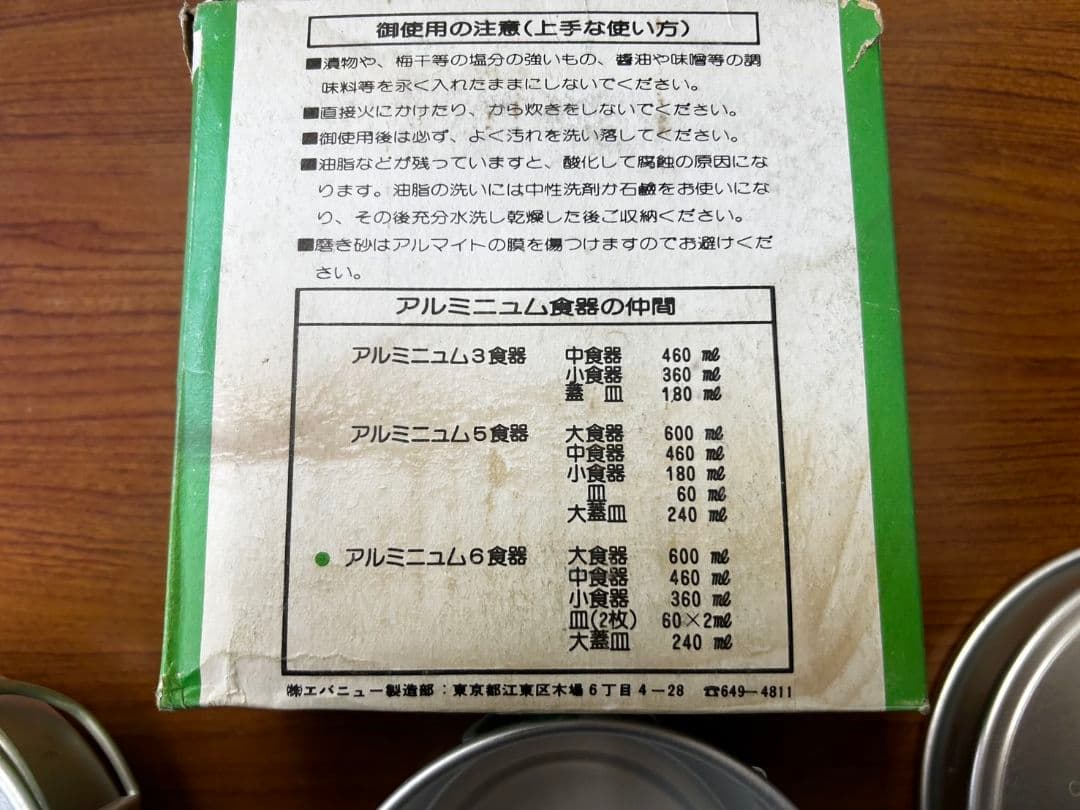 御使用の注意(上手な使い方)
■漬物や、梅干等の塩分の強いもの、醤油や味噌等の調
味料等を永く入れたままにしないでください。
■直接火にかけたり、から炊きをしないでください。
■御使用後は必ず、よく汚れを洗い落してください。
■油脂などが残っていますと、酸化して腐蝕の原因にな
ります。油脂の洗いには中性洗剤か石鹼をお使いにな
り、その後充分水洗し乾燥した後ご収納ください。
■磨き砂はアルマイトの膜を傷つけますのでお避けくだ
さい。
アルミニュム食器の仲間
アルミニュム3食器 中食器 460 ㎖
小食器 360 ㎖
蓋 皿 180 ㎖
アルミニュム5食器 大食器 600 ㎖
中食器 460 ㎖
小食器 180 ㎖
皿 60 ㎖
大蓋皿 240 ㎖
● アルミニュム6食器 大食器 600 ㎖
中食器 460 ㎖
小食器 360 ㎖
皿(2枚) 60×2㎖
大蓋皿 240 ㎖
㈱エバニュー製造部：東京都江東区木場6丁目4－28 ☎649－4811